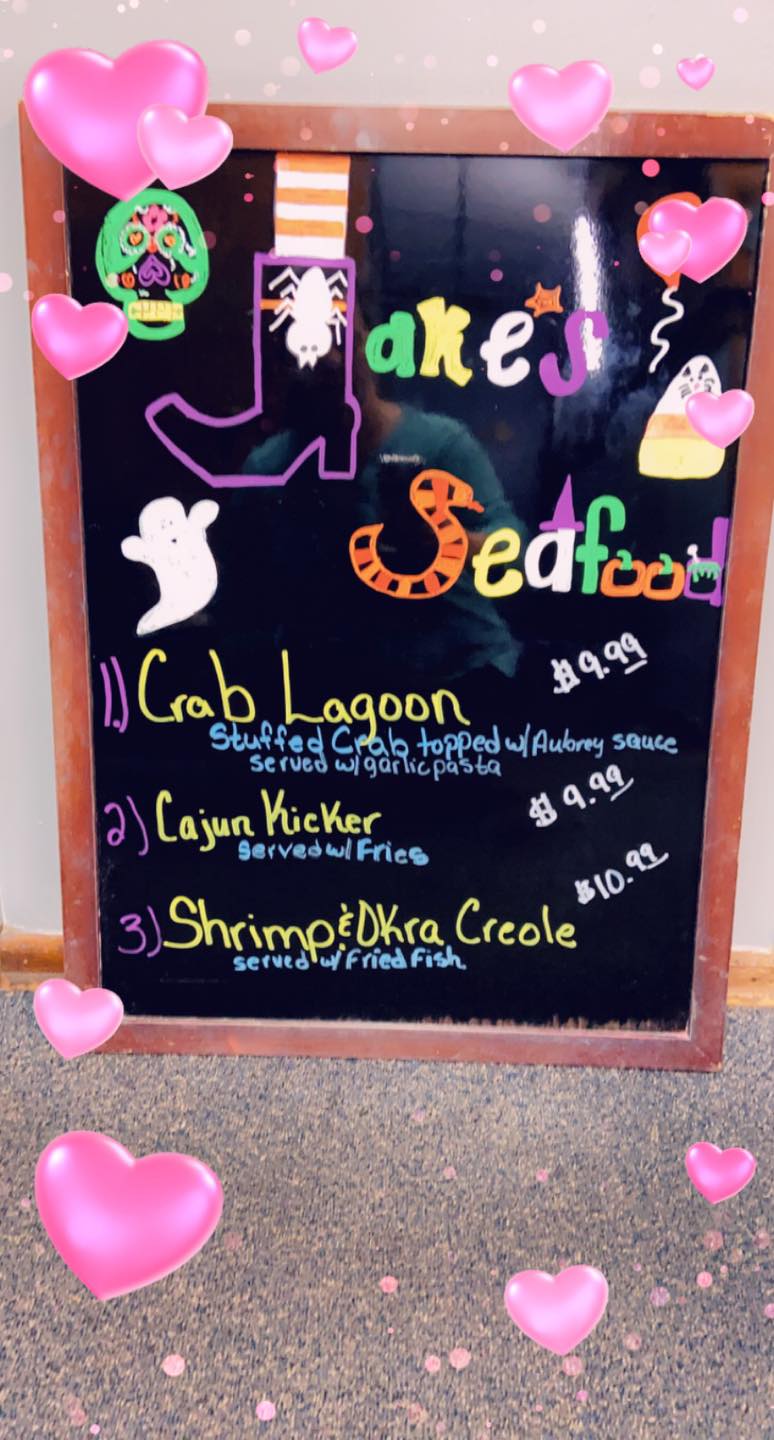 Jake's
Seafood
1.) Crab Lagoon $9.99
Stuffed Crab topped w/Aubrey sauce
served w/garlic pasta
2) Cajun Kicker $9.99
served w/ Fries
3) Shrimp & Okra Creole $10.99
served w/ Fried Fish